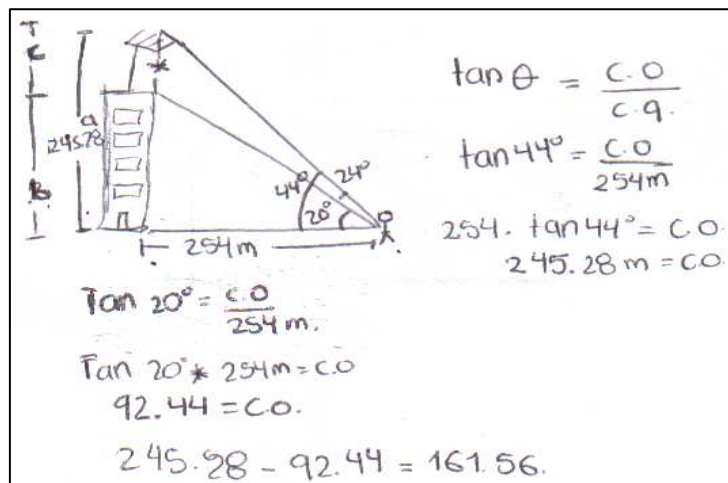 T
C
a
245.28
B
44°
24°
20°
254 m
tan θ = C.O / c.a.
tan 44° = C.O / 254m
254. tan 44° = C.O.
245.28 m = C.O.
Tan 20° = C.O / 254 m.
Tan 20° * 254m = C.O
92.44 = C.O.
245.28 - 92.44 = 161.56.